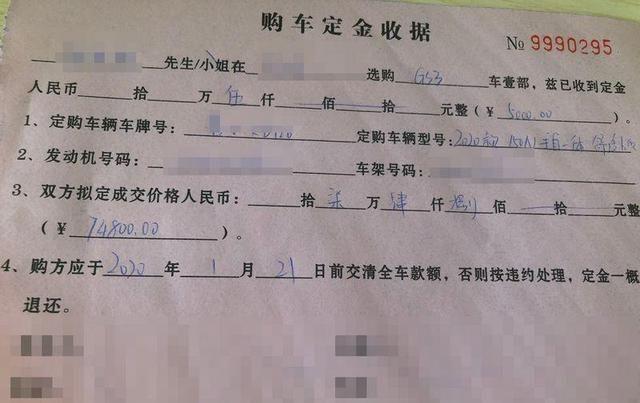 购车定金收据
No 9990295
先生/小姐在 选购 GS3 车壹部，兹已收到定金
人民币 拾 万 伍 仟 佰 拾 元整（￥ 5000.00 ）。
1、定购车辆车牌号： 定购车辆型号：2020款 150N
2、发动机号码： 车架号码：
3、双方拟定成交价格人民币： 拾 柒 万 肆 仟 捌 佰 拾 元整
（￥ 74800.00 ）。
4、购方应于 2020 年 1 月 21 日前交清全车款额，否则按违约处理，定金一概
退还。